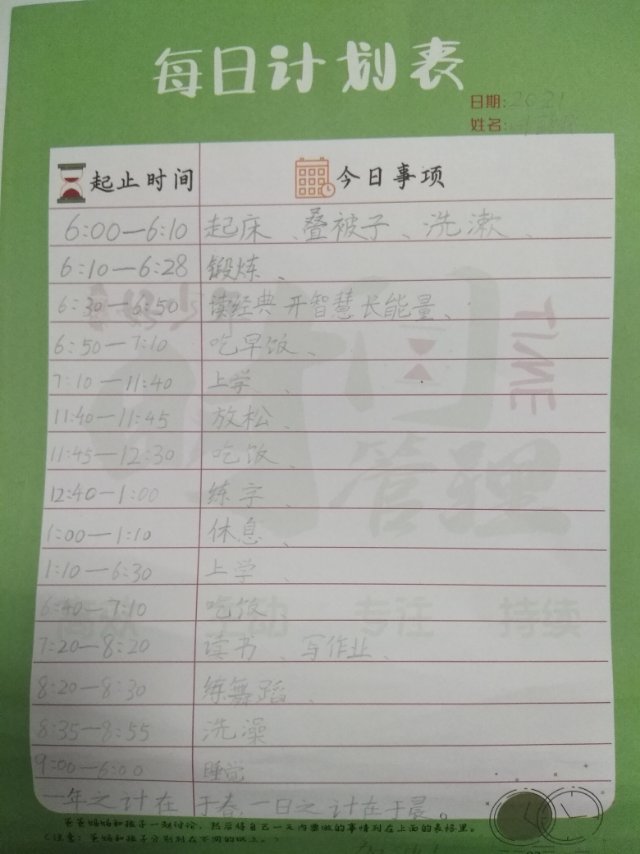 每日计划表
日期: 2021
姓名:
起止时间 今日事项
6:00—6:10 起床、叠被子、洗漱、
6:10—6:28 锻炼、
6:30—6:50 读经典 开智慧 长能量、
6:50—7:10 吃早饭、
7:10—11:40 上学、
11:40—11:45 放松、
11:45—12:30 吃饭、
12:40—1:00 练字、
1:00—1:10 休息、
1:10—6:30 上学、
6:40—7:10 吃饭
7:20—8:20 读书、写作业、
8:20—8:30 练舞蹈、
8:35—8:55 洗澡
9:00—6:00 睡觉
一年之计在于春,一日之计在于晨。
爸爸妈妈和孩子一起讨论,然后将自己一天内要做的事情列在上面的表格里。
(注意:爸妈和孩子分别列在不同的纸上。)
时间管理
TIME
专注
持续